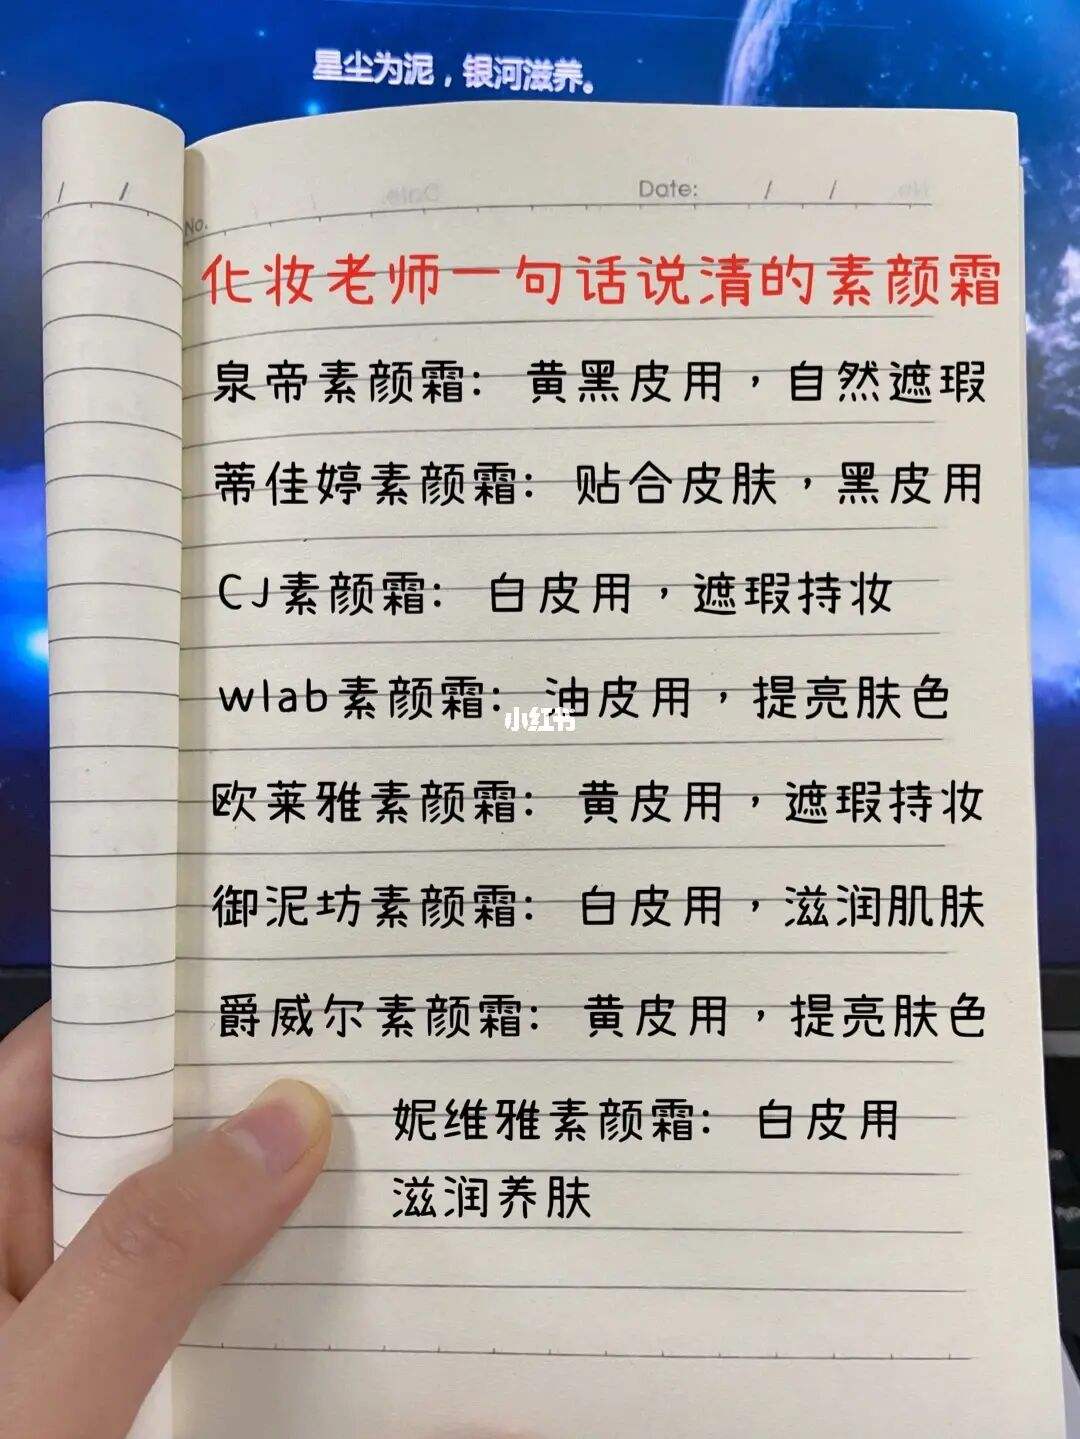 星尘为泥，银河滋养。
/ /
No.
Date: / /
化妆老师一句话说清的素颜霜
泉帝素颜霜：黄黑皮用，自然遮瑕
蒂佳婷素颜霜：贴合皮肤，黑皮用
CJ素颜霜：白皮用，遮瑕持妆
wlab素颜霜：油皮用，提亮肤色
小红书
欧莱雅素颜霜：黄皮用，遮瑕持妆
御泥坊素颜霜：白皮用，滋润肌肤
爵威尔素颜霜：黄皮用，提亮肤色
妮维雅素颜霜：白皮用
滋润养肤